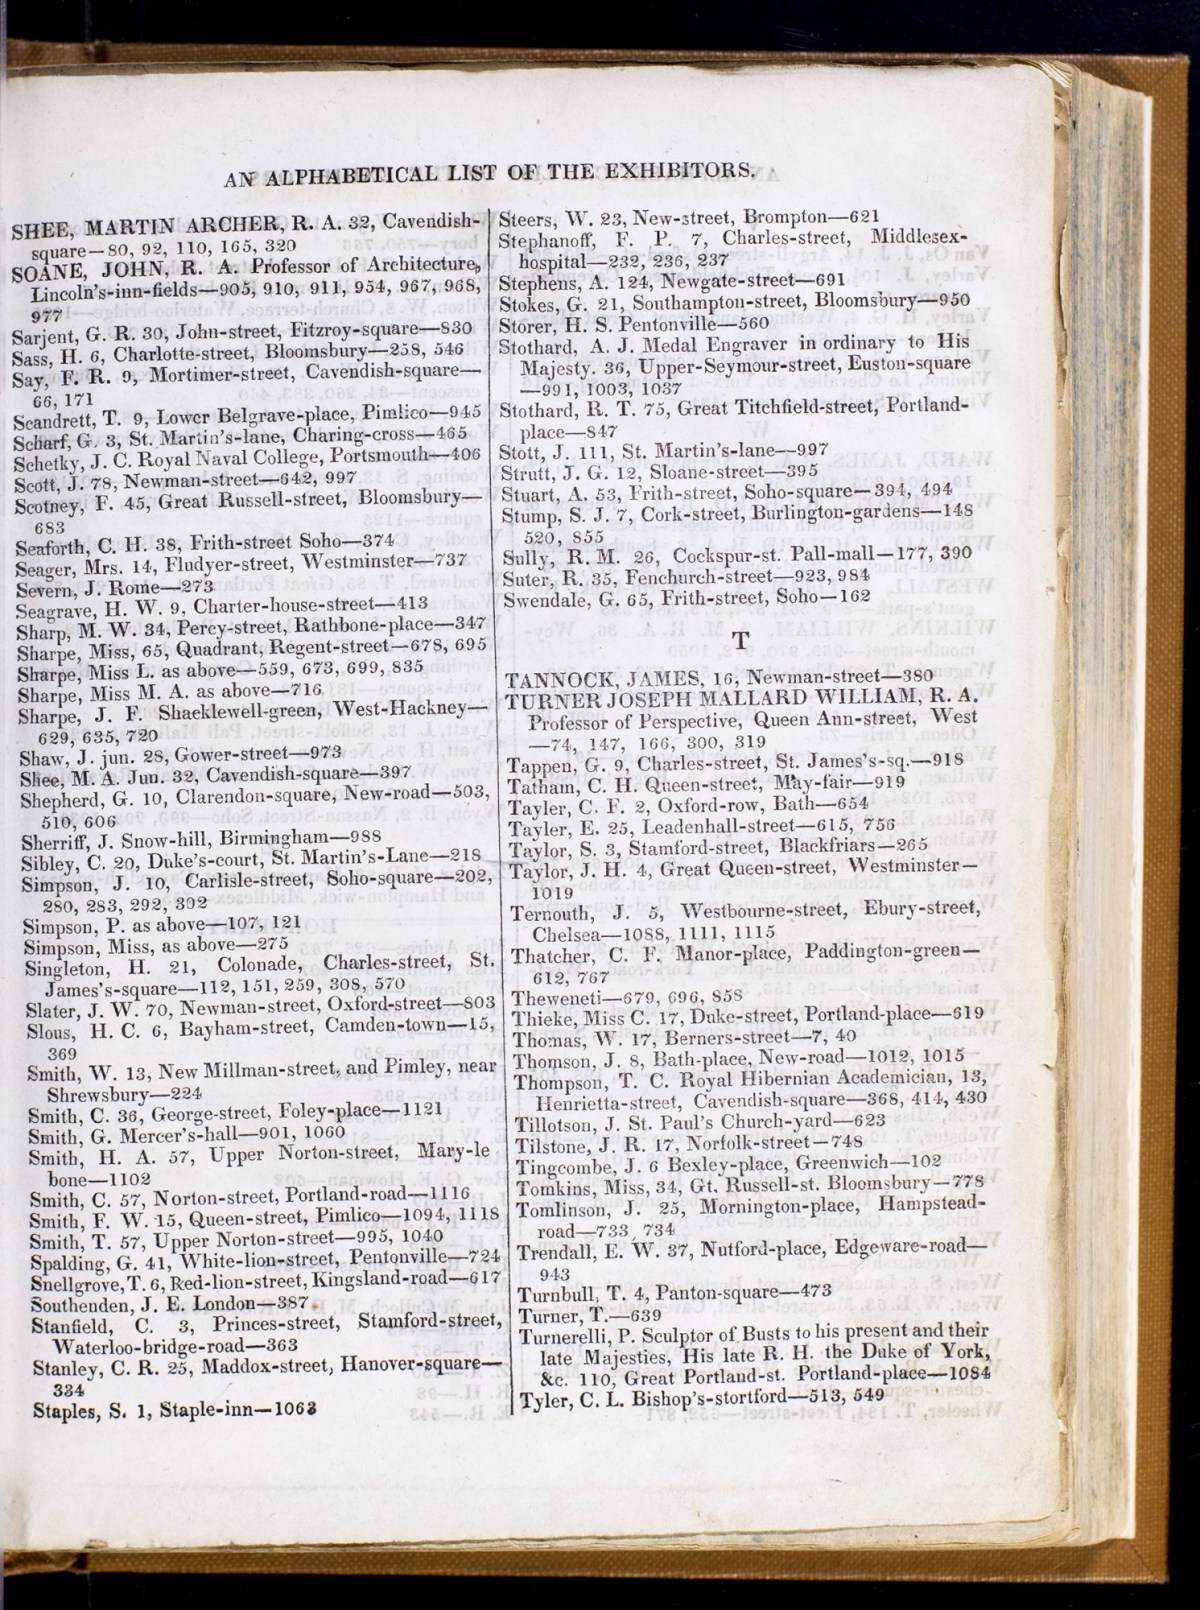 AN ALPHABETICAL LIST OF THE EXHIBITORS.
SHEE, MARTIN ARCHER, R. A. 32, Cavendish-
square—80, 92, 110, 165, 320
SOANE, JOHN, R. A. Professor of Architecture,
Lincoln's-inn-fields—905, 910, 911, 954, 967, 968,
977
Sarjent, G. R. 30, John-street, Fitzroy-square—830
Sass, H. 6, Charlotte-street, Bloomsbury—258, 546
Say, F. R. 9, Mortimer-street, Cavendish-square—
66, 171
Scandrett, T. 9, Lower Belgrave-place, Pimlico—945
Scharf, G. 3, St. Martin's-lane, Charing-cross—465
Schetky, J. C. Royal Naval College, Portsmouth—406
Scott, J. 78, Newman-street—642, 997
Scotney, F. 45, Great Russell-street, Bloomsbury—
683
Seaforth, C. H. 38, Frith-street Soho—374
Seager, Mrs. 14, Fludyer-street, Westminster—737
Severn, J. Rome—273
Seagrave, H. W. 9, Charter-house-street—413
Sharp, M. W. 34, Percy-street, Rathbone-place—347
Sharpe, Miss, 65, Quadrant, Regent-street—678, 695
Sharpe, Miss L. as above—559, 673, 699, 835
Sharpe, Miss M. A. as above—716
Sharpe, J. F. Shaeklewell-green, West-Hackney—
629, 635, 720
Shaw, J. jun. 28, Gower-street—973
Shee, M. A. Jun. 32, Cavendish-square—397
Shepherd, G. 10, Clarendon-square, New-road—503,
510, 606
Sherriff, J. Snow-hill, Birmingham—988
Sibley, C. 20, Duke's-court, St. Martin's-Lane—218
Simpson, J. 10, Carlisle-street, Soho-square—202,
280, 283, 292, 302
Simpson, P. as above—107, 121
Simpson, Miss, as above—275
Singleton, H. 21, Colonade, Charles-street, St.
James's-square—112, 151, 259, 308, 570
Slater, J. W. 70, Newman-street, Oxford-street—803
Slous, H. C. 6, Bayham-street, Camden-town—15,
369
Smith, W. 13, New Millman-street, and Pimley, near
Shrewsbury—224
Smith, C. 36, George-street, Foley-place—1121
Smith, G. Mercer's-hall—901, 1060
Smith, H. A. 57, Upper Norton-street, Mary-le
bone—1102
Smith, C. 57, Norton-street, Portland-road—1116
Smith, F. W. 15, Queen-street, Pimlico—1094, 1118
Smith, T. 57, Upper Norton-street—995, 1040
Spalding, G. 41, White-lion-street, Pentonville—724
Snellgrove, T. 6, Red-lion-street, Kingsland-road—617
Southenden, J. E. London—387
Stanfield, C. 3, Princes-street, Stamford-street,
Waterloo-bridge-road—363
Stanley, C. R. 25, Maddox-street, Hanover-square—
334
Staples, S. 1, Staple-inn—1063
Steers, W. 23, New-street, Brompton—621
Stephanoff, F. P. 7, Charles-street, Middlesex-
hospital—232, 236, 237
Stephens, A. 124, Newgate-street—691
Stokes, G. 21, Southampton-street, Bloomsbury—950
Storer, H. S. Pentonville—560
Stothard, A. J. Medal Engraver in ordinary to His
Majesty. 36, Upper-Seymour-street, Euston-square
—991, 1003, 1037
Stothard, R. T. 75, Great Titchfield-street, Portland-
place—847
Stott, J. 111, St. Martin's-lane—997
Strutt, J. G. 12, Sloane-street—395
Stuart, A. 53, Frith-street, Soho-square—394, 494
Stump, S. J. 7, Cork-street, Burlington-gardens—148
520, 855
Sully, R. M. 26, Cockspur-st. Pall-mall—177, 390
Suter, R. 35, Fenchurch-street—923, 984
Swendale, G. 65, Frith-street, Soho—162
T
TANNOCK, JAMES, 16, Newman-street—380
TURNER JOSEPH MALLARD WILLIAM, R. A.
Professor of Perspective, Queen Ann-street, West
—74, 147, 166, 300, 319
Tappen, G. 9, Charles-street, St. James's-sq.—918
Tatham, C. H. Queen-street, May-fair—919
Tayler, C. F. 2, Oxford-row, Bath—654
Tayler, E. 25, Leadenhall-street—615, 756
Taylor, S. 3, Stamford-street, Blackfriars—265
Taylor, J. H. 4, Great Queen-street, Westminster—
1019
Ternouth, J. 5, Westbourne-street, Ebury-street,
Chelsea—1088, 1111, 1115
Thatcher, C. F. Manor-place, Paddington-green—
612, 767
Theweneti—679, 696, 858
Thieke, Miss C. 17, Duke-street, Portland-place—619
Thomas, W. 17, Berners-street—7, 40
Thomson, J. 8, Bath-place, New-road—1012, 1015
Thompson, T. C. Royal Hibernian Academician, 13,
Henrietta-street, Cavendish-square—368, 414, 430
Tillotson, J. St. Paul's Church-yard—623
Tilstone, J. R. 17, Norfolk-street—748
Tingcombe, J. 6 Bexley-place, Greenwich—102
Tomkins, Miss, 34, Gt. Russell-st. Bloomsbury—778
Tomlinson, J. 25, Mornington-place, Hampstead-
road—733, 734
Trendall, E. W. 37, Nutford-place, Edgeware-road—
943
Turnbull, T. 4, Panton-square—473
Turner, T.—639
Turnerelli, P. Sculptor of Busts to his present and their
late Majesties, His late R. H. the Duke of York,
&c. 110, Great Portland-st. Portland-place—1084
Tyler, C. L. Bishop's-stortford—513, 549